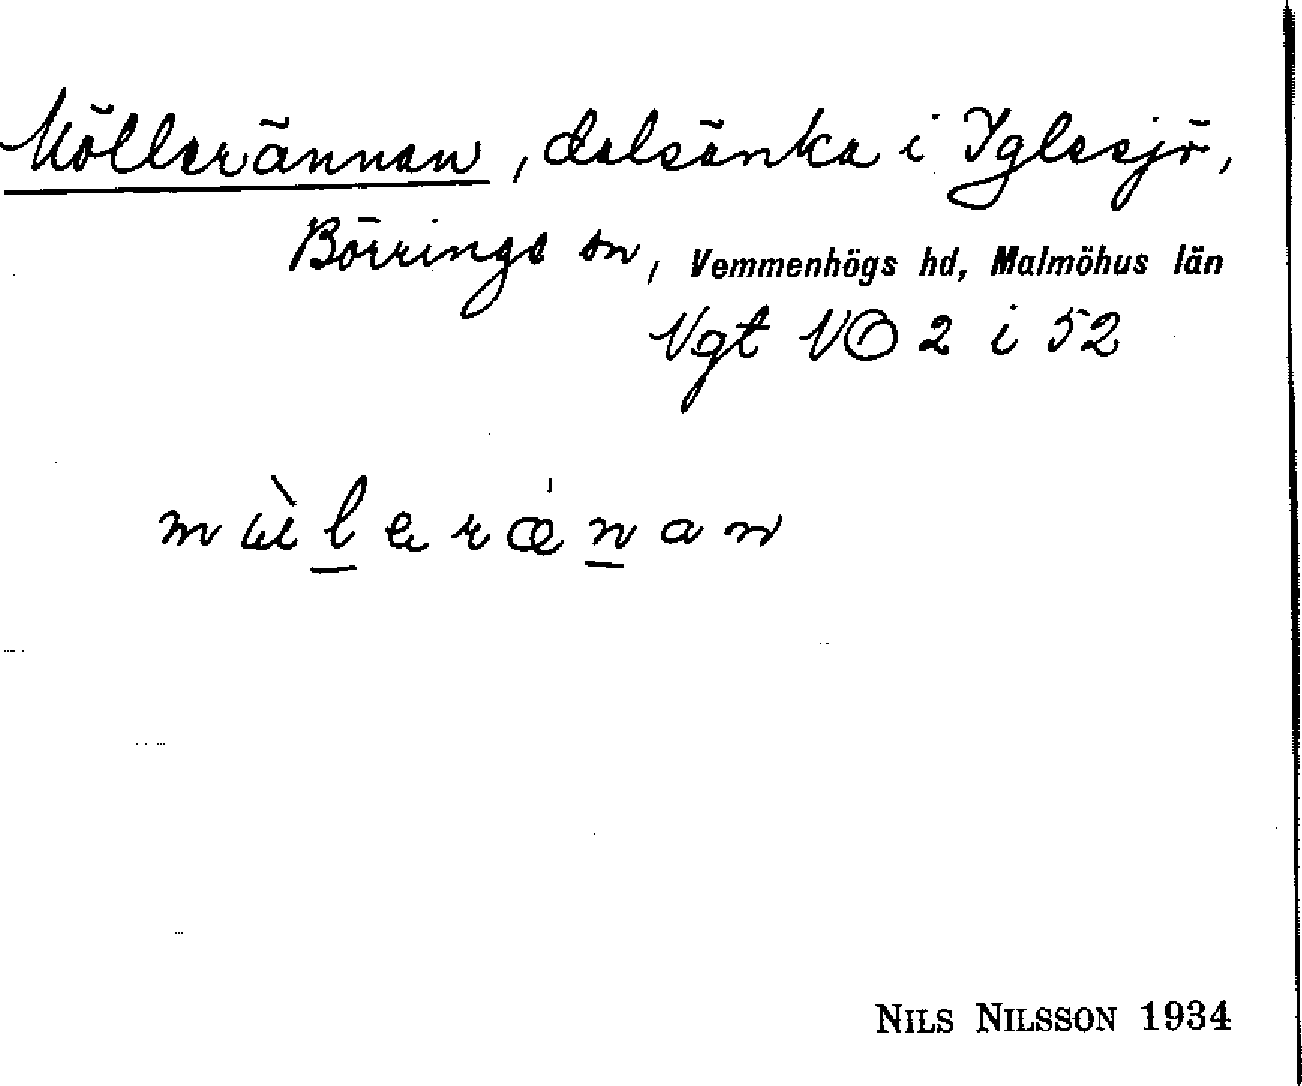 Möllerännan, dalsänka i Iglesjö,
Börringe sn, Vemmenhögs hd, Malmöhus län
Vgt VO 2 i 52
NILS NILSSON 1934